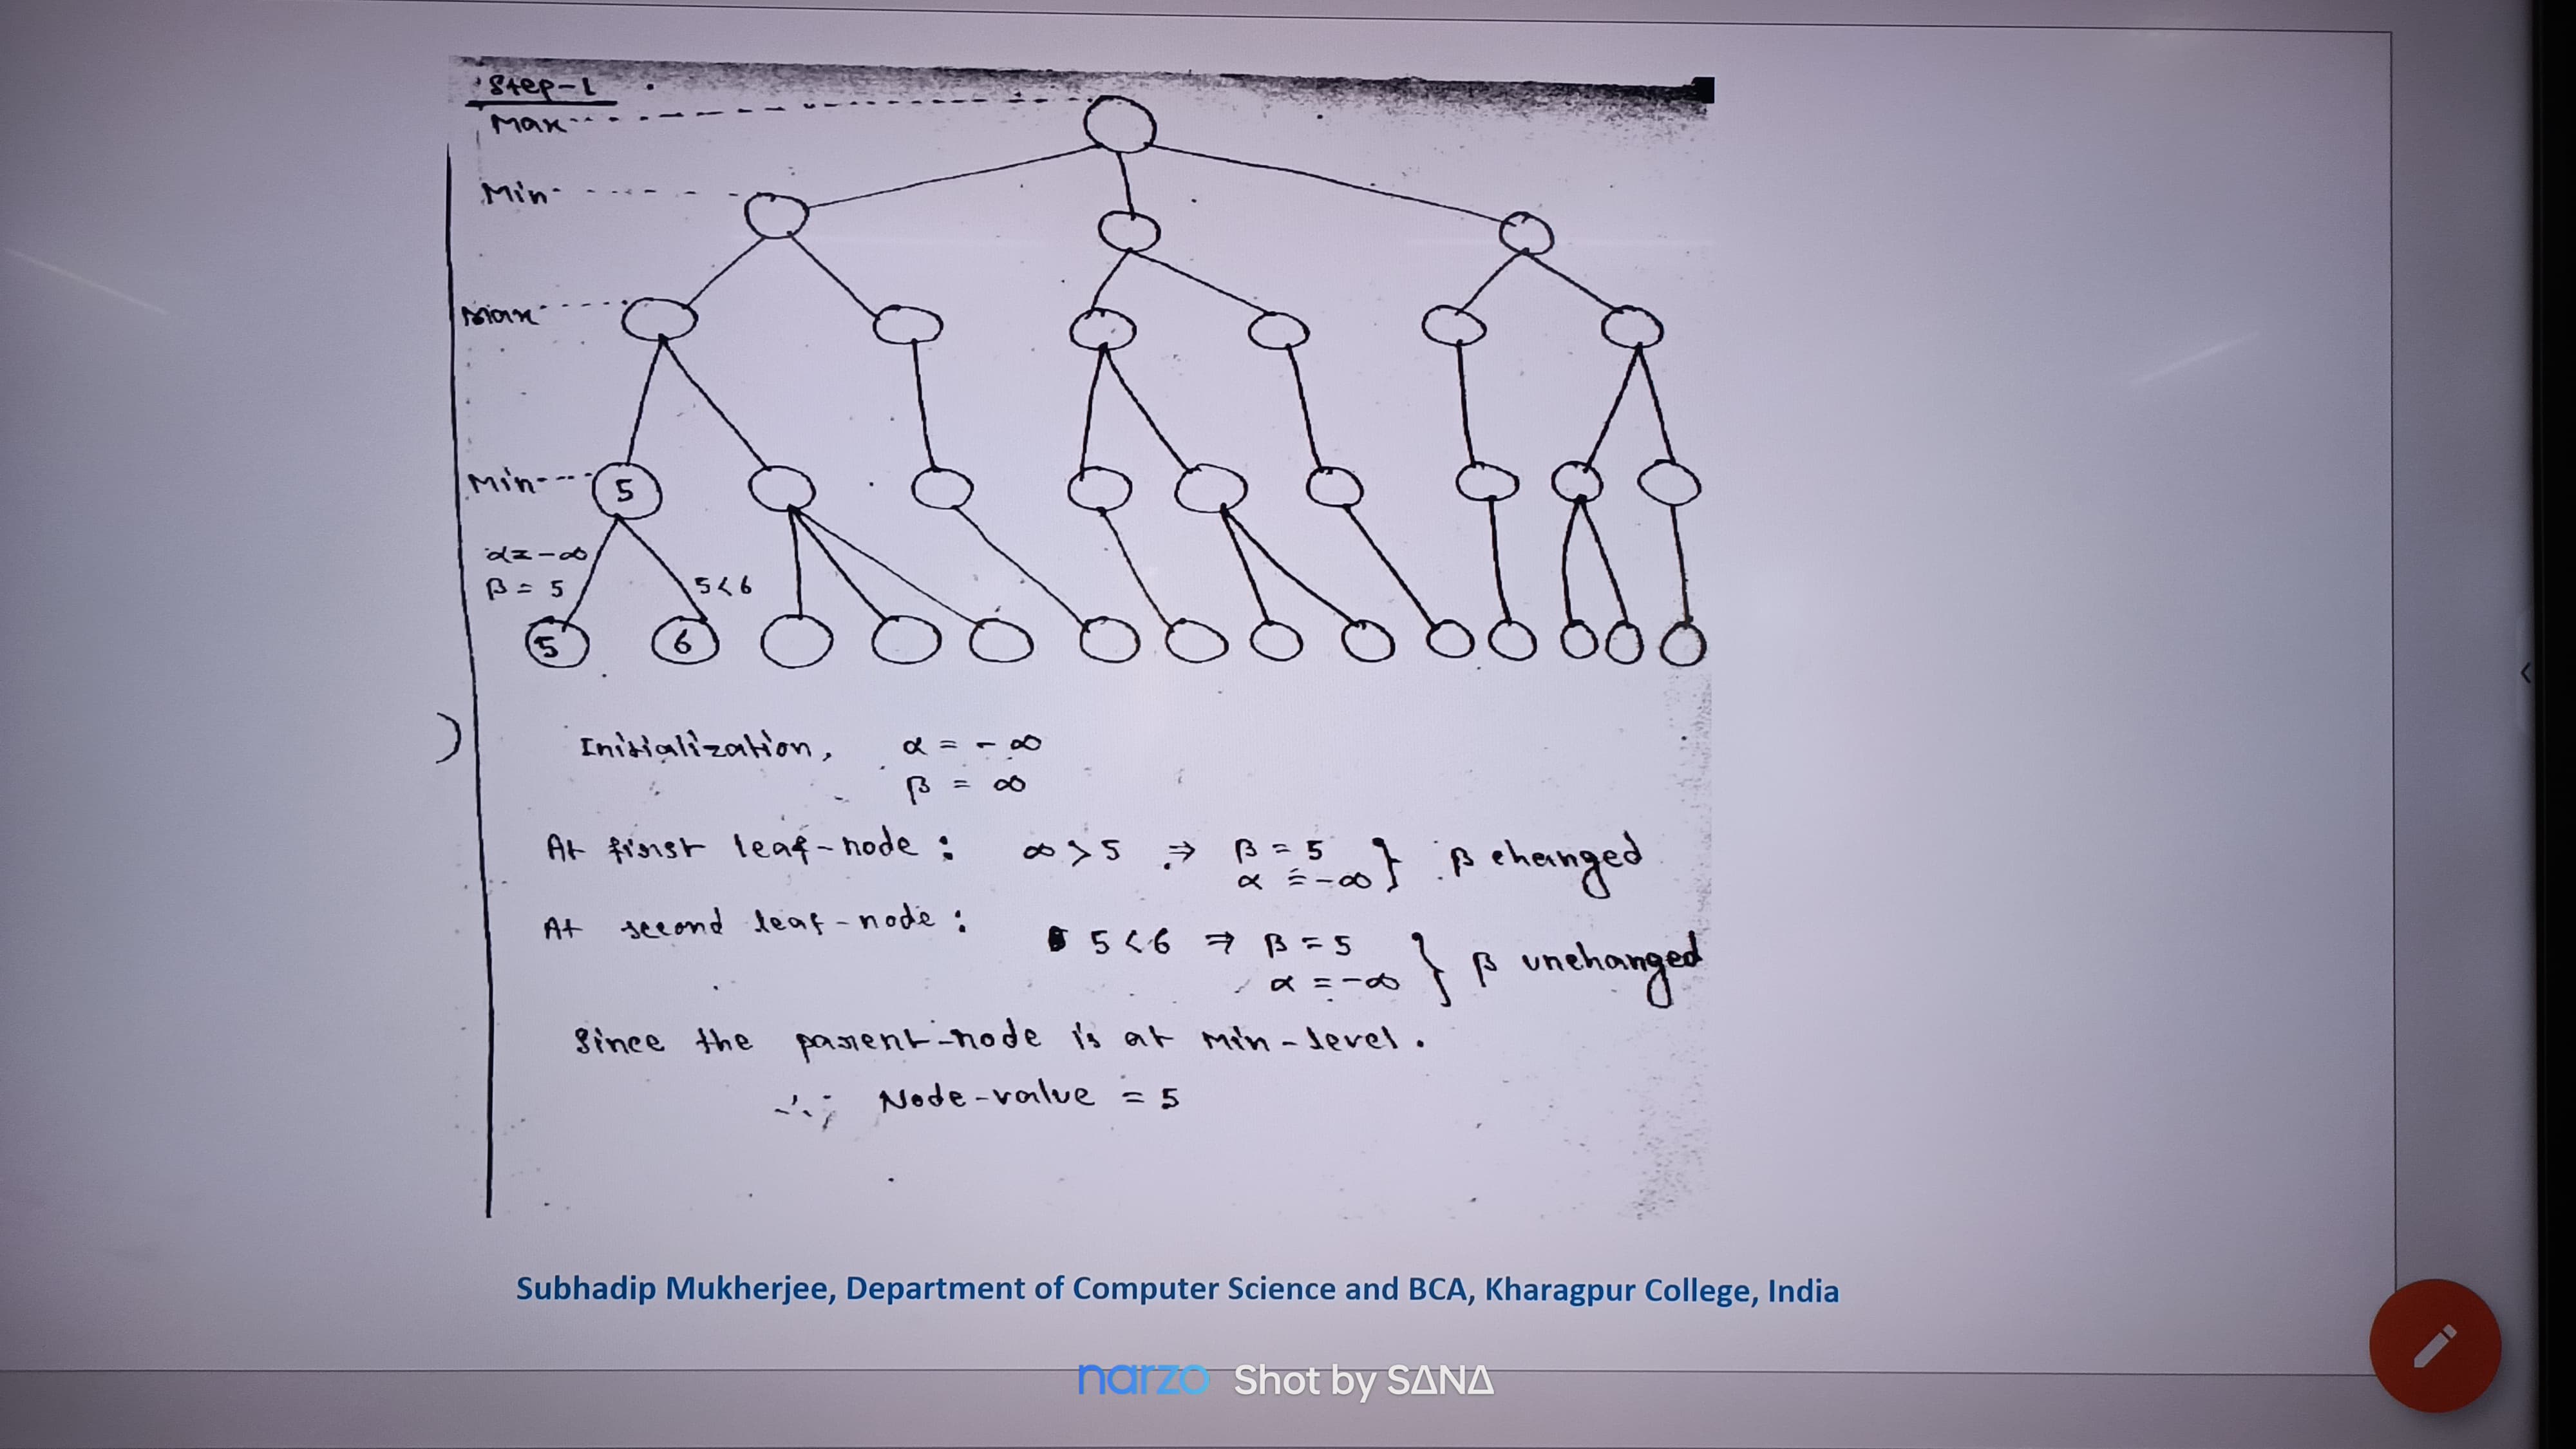 Step-1
Max
Min
Max
Min
5
α = -∞
β = 5
5 < 6
5
6
Initialization, α = - ∞
β = ∞
At first leaf-node : ∞ > 5 ⇒ β = 5 } β changed
α = -∞
At second leaf-node :
5 < 6 ⇒ β = 5 } β unchanged
α = -∞
Since the parent-node is at Min-level.
∴ Node-value = 5
Subhadip Mukherjee, Department of Computer Science and BCA, Kharagpur College, India
narzo Shot by SΔNΔ